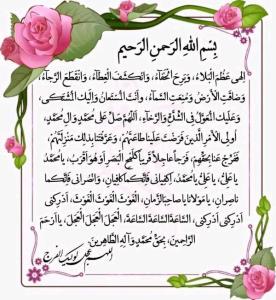 بِسْمِ اللهِ الرَحمنِ الرَحیمِ
اِلهی عَظُمَ الْبَلاءُ، وَبَرِحَ الْخَفاءُ، وَانْکَشَفَ الْغِطاءُ، وَانْقَطَعَ الرَّجاءُ،
وَضاقَتِ الْاَرْضُ وَمُنِعَتِ السَّماءُ، وَاَنْتَ الْمُسْتَعانُ وَاِلَیْکَ الْمُشْتَکی،
وَعَلَیْکَ الْمُعَوَّلُ فِی الشِّدَّةِ وَالرَّخاءِ، اَللّهُمَّ صَلِّ عَلی مُحَمَّدٍ وَآلِ مُحَمَّدٍ،
اُولِی الْاَمْرِ الَّذینَ فَرَضْتَ عَلَیْنا طاعَتَهُمْ، وَعَرَّفْتَنا بِذلِکَ مَنْزِلَتَهُمْ،
فَفَرِّجْ عَنّا بِحَقِّهِمْ، فَرَجاً عاجِلاً قَریباً کَلَمْحِ الْبَصَرِ اَوْ هُوَ اَقْرَبُ، یا مُحَمَّدُ
یا عَلِیُّ، یا عَلِیُّ یا مُحَمَّدُ، اِکْفِیانی فَاِنَّکُما کافِیانِ، وَانْصُرانی فَاِنَّکُما
ناصِرانِ، یا مَوْلانا یا صاحِبَ الزَّمانِ، الْغَوْثَ الْغَوْثَ الْغَوْثَ، اَدْرِکْنی
اَدْرِکْنی اَدْرِکْنی، السّاعَةَ السّاعَةَ السّاعَةَ، الْعَجَلَ الْعَجَلَ الْعَجَلَ، یا اَرْحَمَ
الرّاحِمینَ، بِحَقِّ مُحَمَّدٍ وَآلِهِ الطّاهِرینَ.
اللهم عجل لولیک الفرج